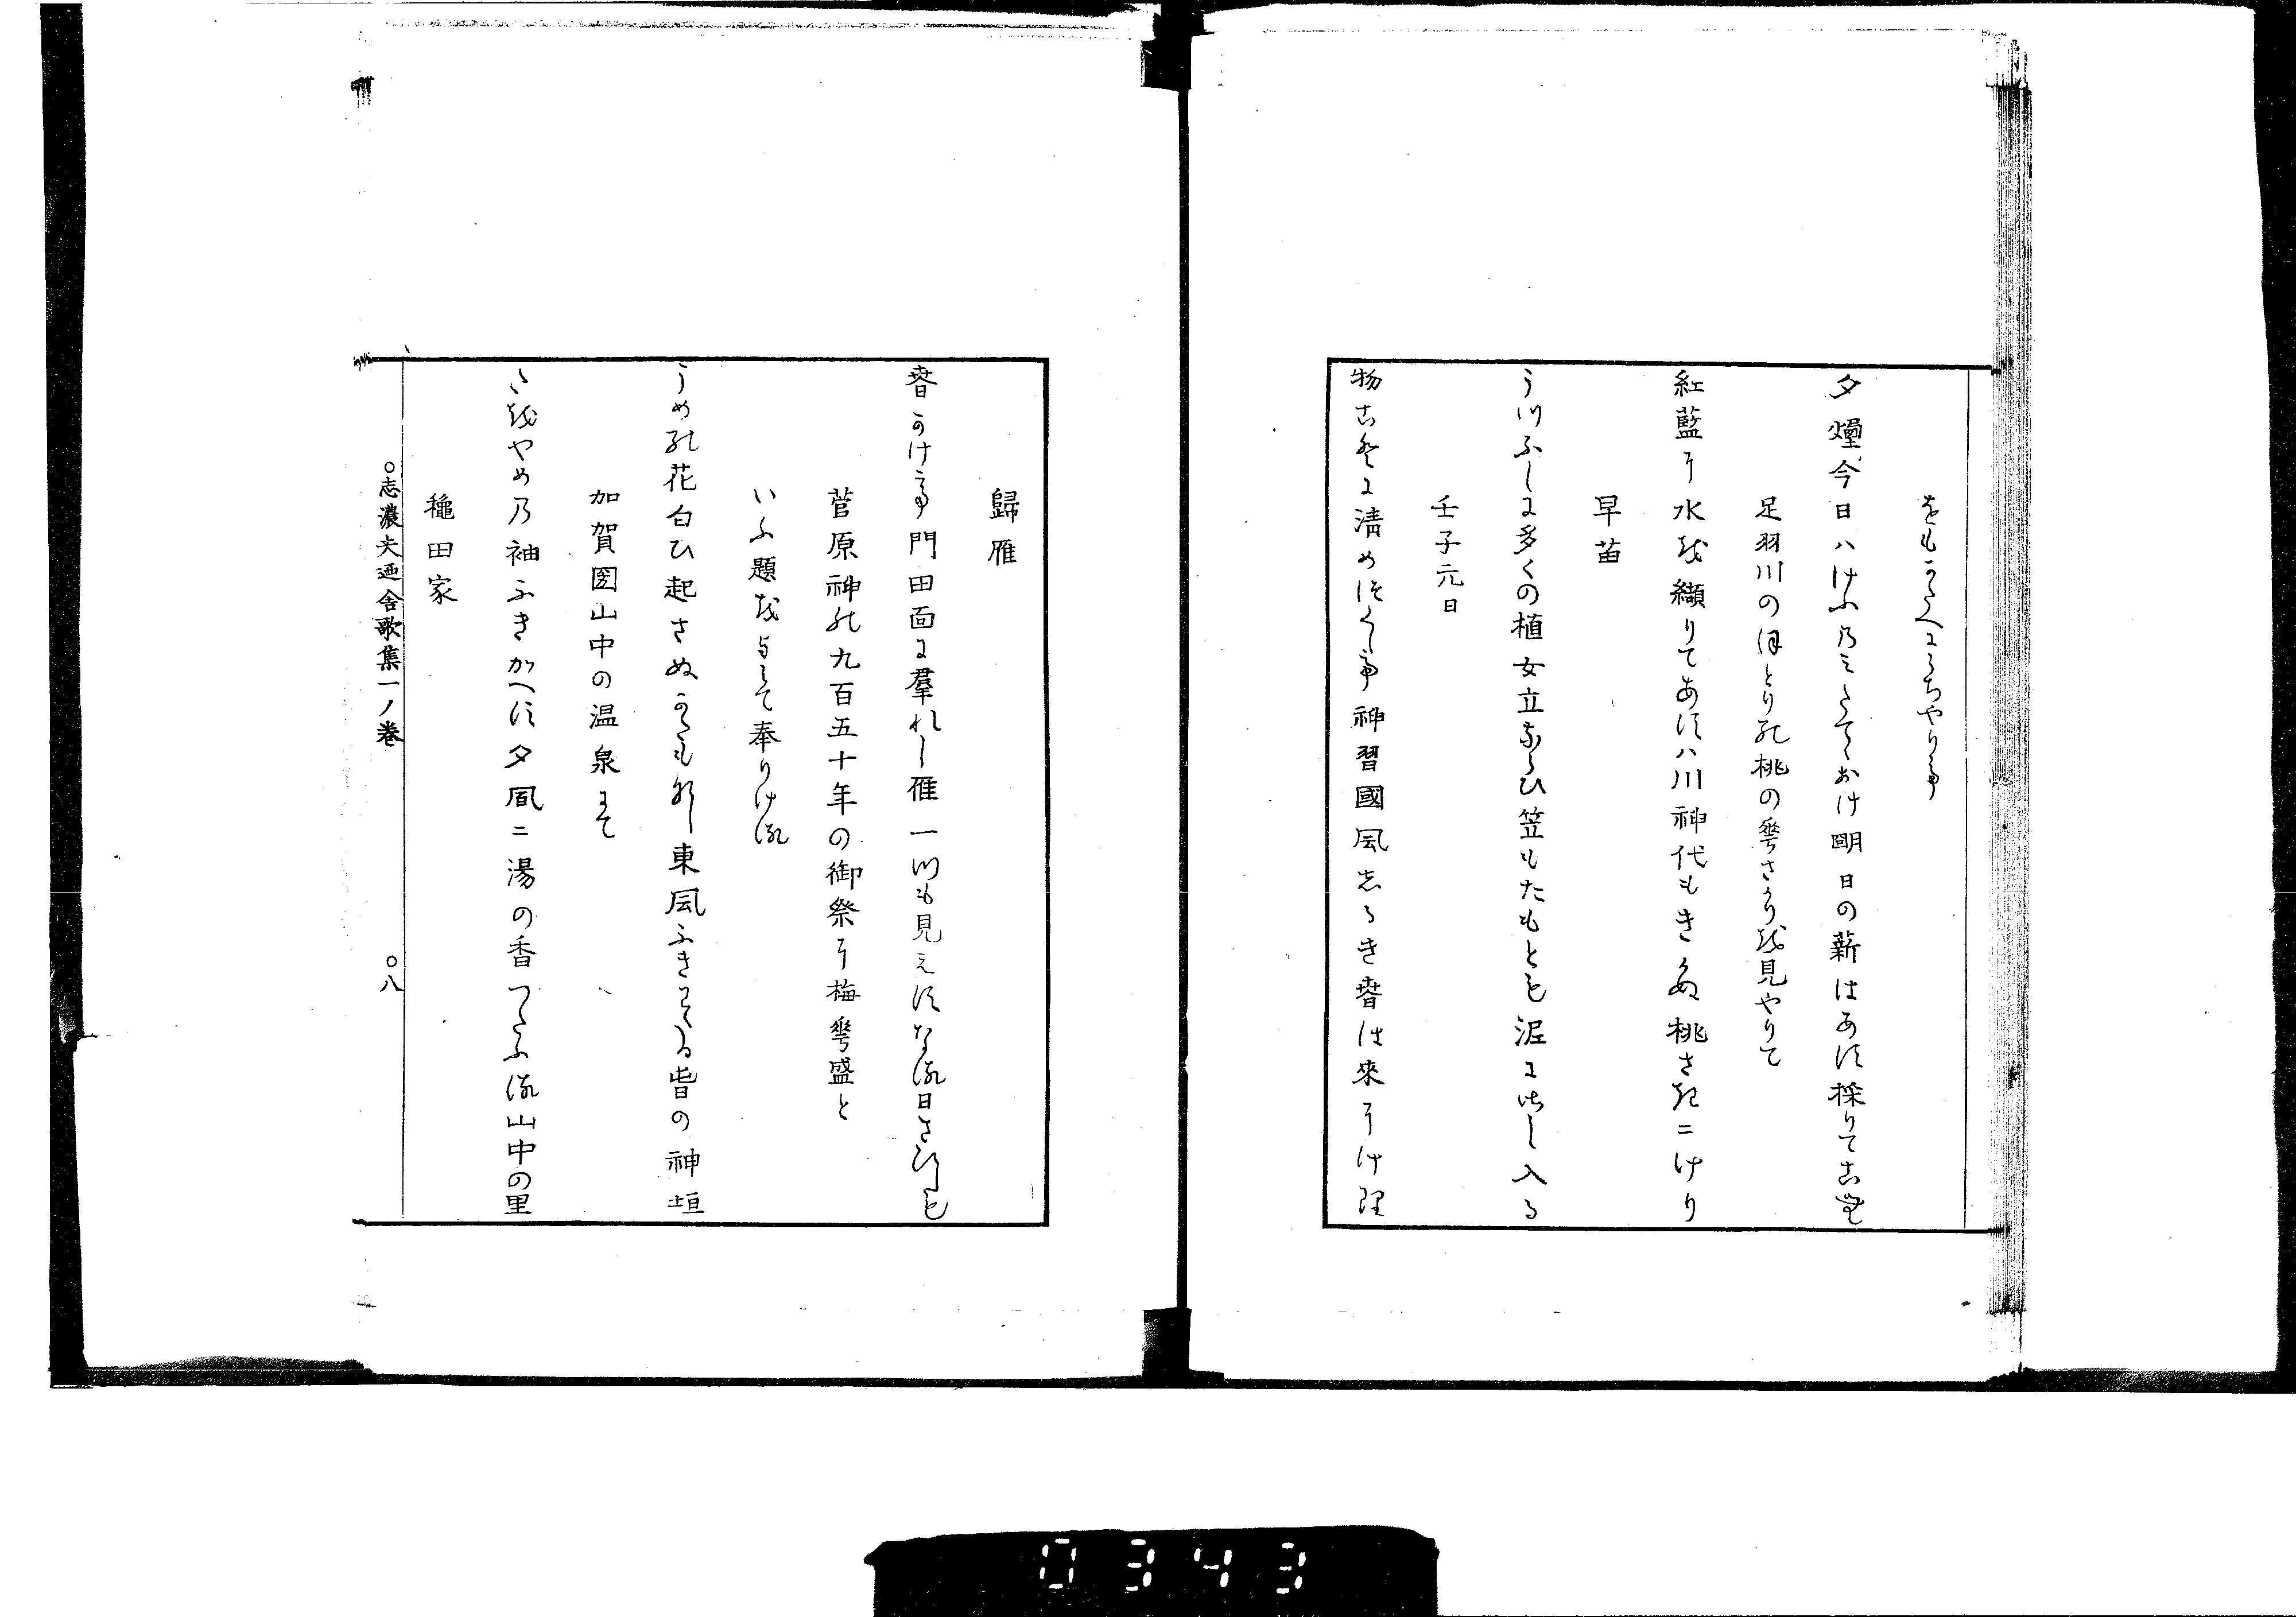 をもかたへにうちやりつゝ
夕煙今日ハけふのミたてゝおけ明日の薪はあす採りてこむ
足羽川のほとりの桃の花さかりを見やりて
紅藍に水を纈りてあすハ川神代もきかぬ桃さきニけり
早苗
うつふしに多くの植女立ならひ笠もたもとも泥にさし入る
壬子元日
物ことに清めつくして神習國風しるき春は來にけり
歸雁
春かけて門田面に羣れし雁一つも見えすなる日さひしも
菅原神の九百五十年の御祭に梅花盛と
いふ題をよみて奉りける
うめの花匂ひ起さぬかたもなし東風ふきわたる皆の神垣
加賀国山中の温泉にて
たをやめの袖ふきかへす夕風ニ湯の香つたふる山中の里
穐田家
○志濃夫廼舎歌集一ノ巻 ○八
0343